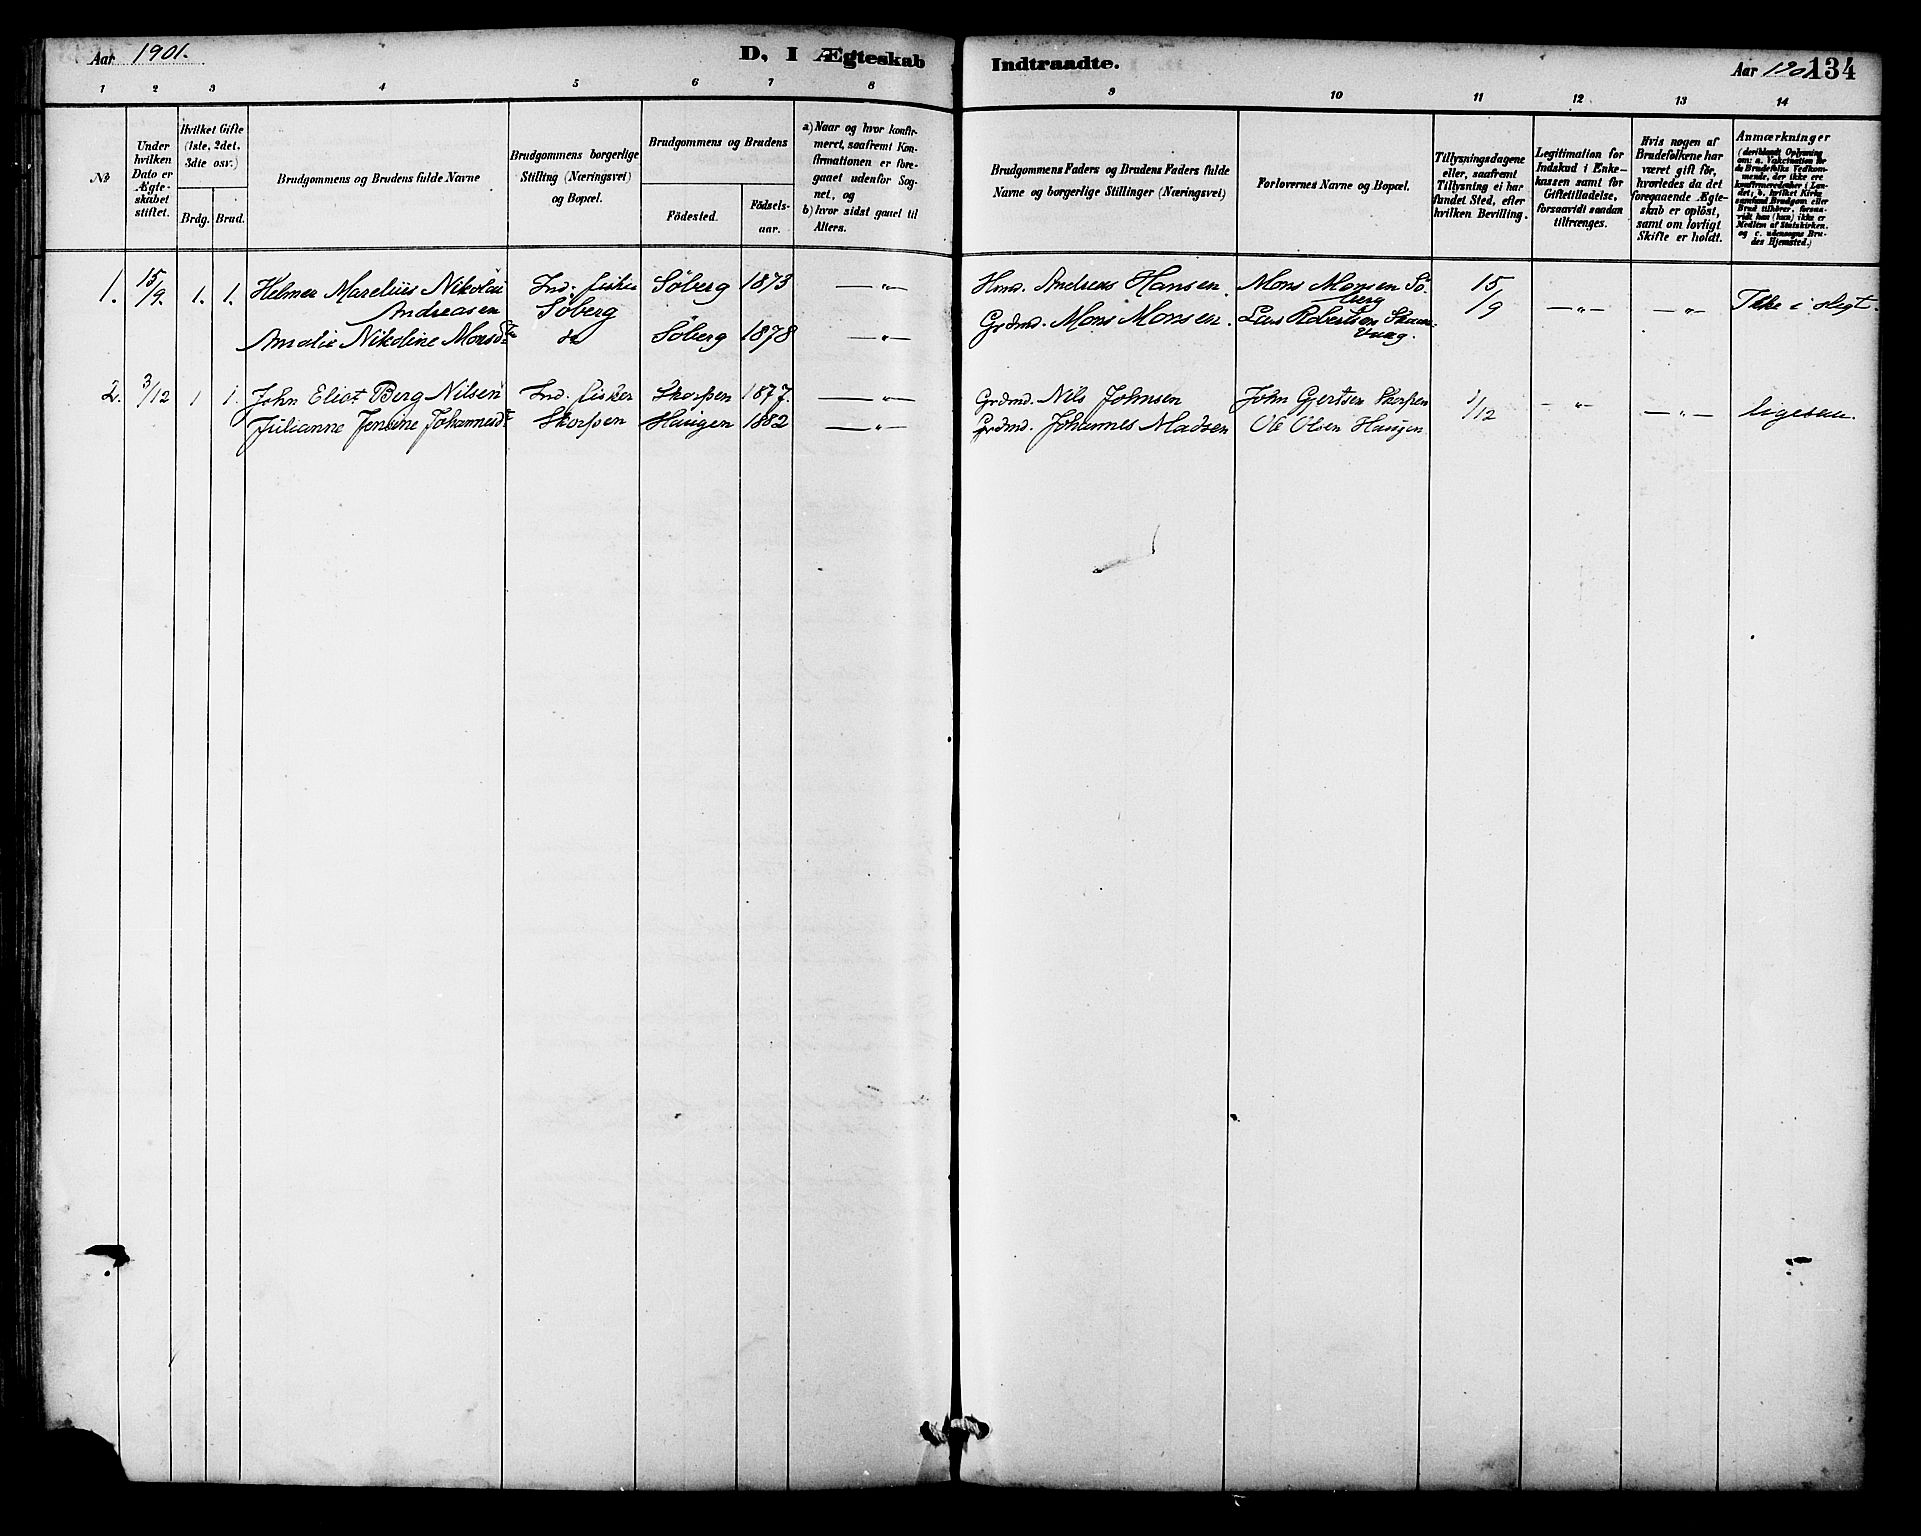 Aar 1901. D. I Ægteskab Indtraadte. Aar 1901. 134
1 2 3 4 5 6 7 8 9 10 11 12 13 14
№
Under hvilken Dato er Ægteskabet stiftet.
Hvilket Gifte (1ste, 2det, 3die osv.)
Brdg. Brud.
Brudgommens og Brudens fulde Navne
Brudgommens borgerlige Stilling (Næringsvei) og Bopæl.
Brudgommens og Brudens
Födested. Födselsaar.
a) Naar og hvor konfirmeret, saafremt Konfirmationen er foregaaet udenfor Sognet, og
b) hvor sidst gaaet til Alters.
Brudgommens Faders og Brudens Faders fulde Navne og borgerlige Stillinger (Næringsvei)
Forlovernes Navne og Bopæl.
Tillysningsdagene eller, saafremt Tillysning ei har fundet Sted, efter hvilken Bevilling.
Legitimation for Indskud i Enkekassen samt for Giftetilladelse, forsaavidt saadan tiltrænges.
Hvis nogen af Brudefolkene har været gift för, hvorledes da det foregaaende Ægteskab er oplöst, samt om lovligt Skifte er holdt.
Anmærkninger
(deriblandt Oplysning om: a. Vakcination for de Brudefolks Vedkommende, der ikke ere konfirmerede her i Landet; b. hvilket Kirkesamfund Brudgom eller Brud tilhörer, forsaavidt han (hun) ikke er Medlem af Statskirken, og c. udensogns Brudes Hjemsted.)
1. 15/9. 1. 1. Helmer Marelius Nikolai Ind. fisker Söberg 1873 —"— Hmd. Andreas Hansen. Mons Monsen Sö- 15/9 —"— —"— Ikke i slegt.
Andreasen Söberg berg
Amalie Nikoline Monsdtr do Söberg 1878 —"— Grdmd. Mons Monsen. Lars Robertsen
2. 3/12 1 1. John Eliot Berg Nilsen Ind. fisker Skorpen 1877. —"— Grdmd. Nils Johnsen John Gjertsen Skorpen 1/12 —"— —"— ligesaa.
Julianne Jensine Johannesdtr Skorpen Haugen 1882 —"— Grdmd. Johannes Madsen Ole Olsen Haugen